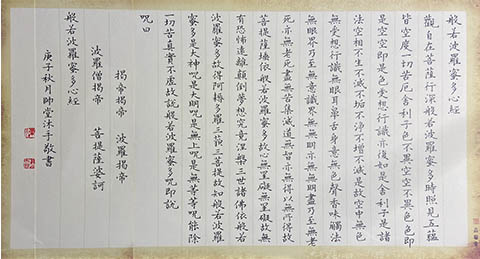 般若波羅蜜多心經
觀自在菩薩行深般若波羅蜜多時照見五蘊
皆空度一切苦厄舍利子色不異空空不異色色即
是空空即是色受想行識亦復如是舍利子是諸
法空相不生不滅不垢不淨不增不減是故空中無色
無受想行識無眼耳鼻舌身意無色聲香味觸法
無眼界乃至無意識界無無明亦無無明盡乃至無老
死亦無老死盡無苦集滅道無智亦無得以無所得故
菩提薩埵依般若波羅蜜多故心無罣礙無罣礙故無
有恐怖遠離顛倒夢想究竟涅槃三世諸佛依般若
波羅蜜多故得阿耨多羅三藐三菩提故知般若波羅
蜜多是大神呪是大明呪是無上呪是無等等呪能除
一切苦真實不虛故說般若波羅蜜多呪即說
呪曰
揭帝揭帝 波羅揭帝
波羅僧揭帝 菩提薩婆訶
般若波羅蜜多心經
庚子秋月帥堂沐手敬書